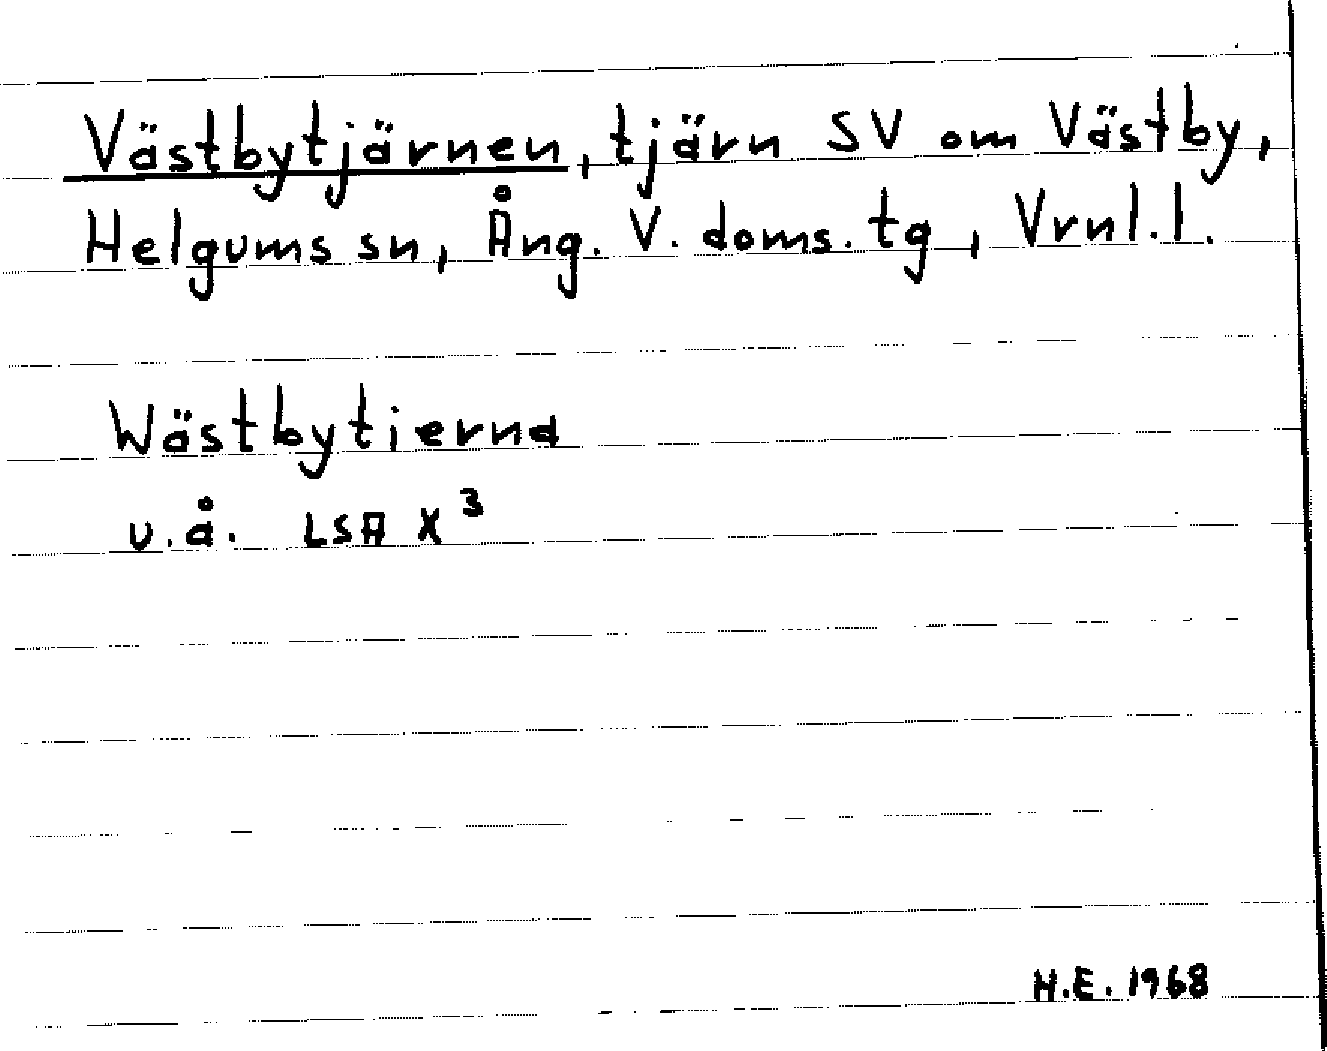 Västbytjärnen, tjärn SV om Västby,
Helgums sn, Ång. V. doms. tg, Vrnl.l.
Wästbytierna
u.å. LSA X³
H.E. 1968